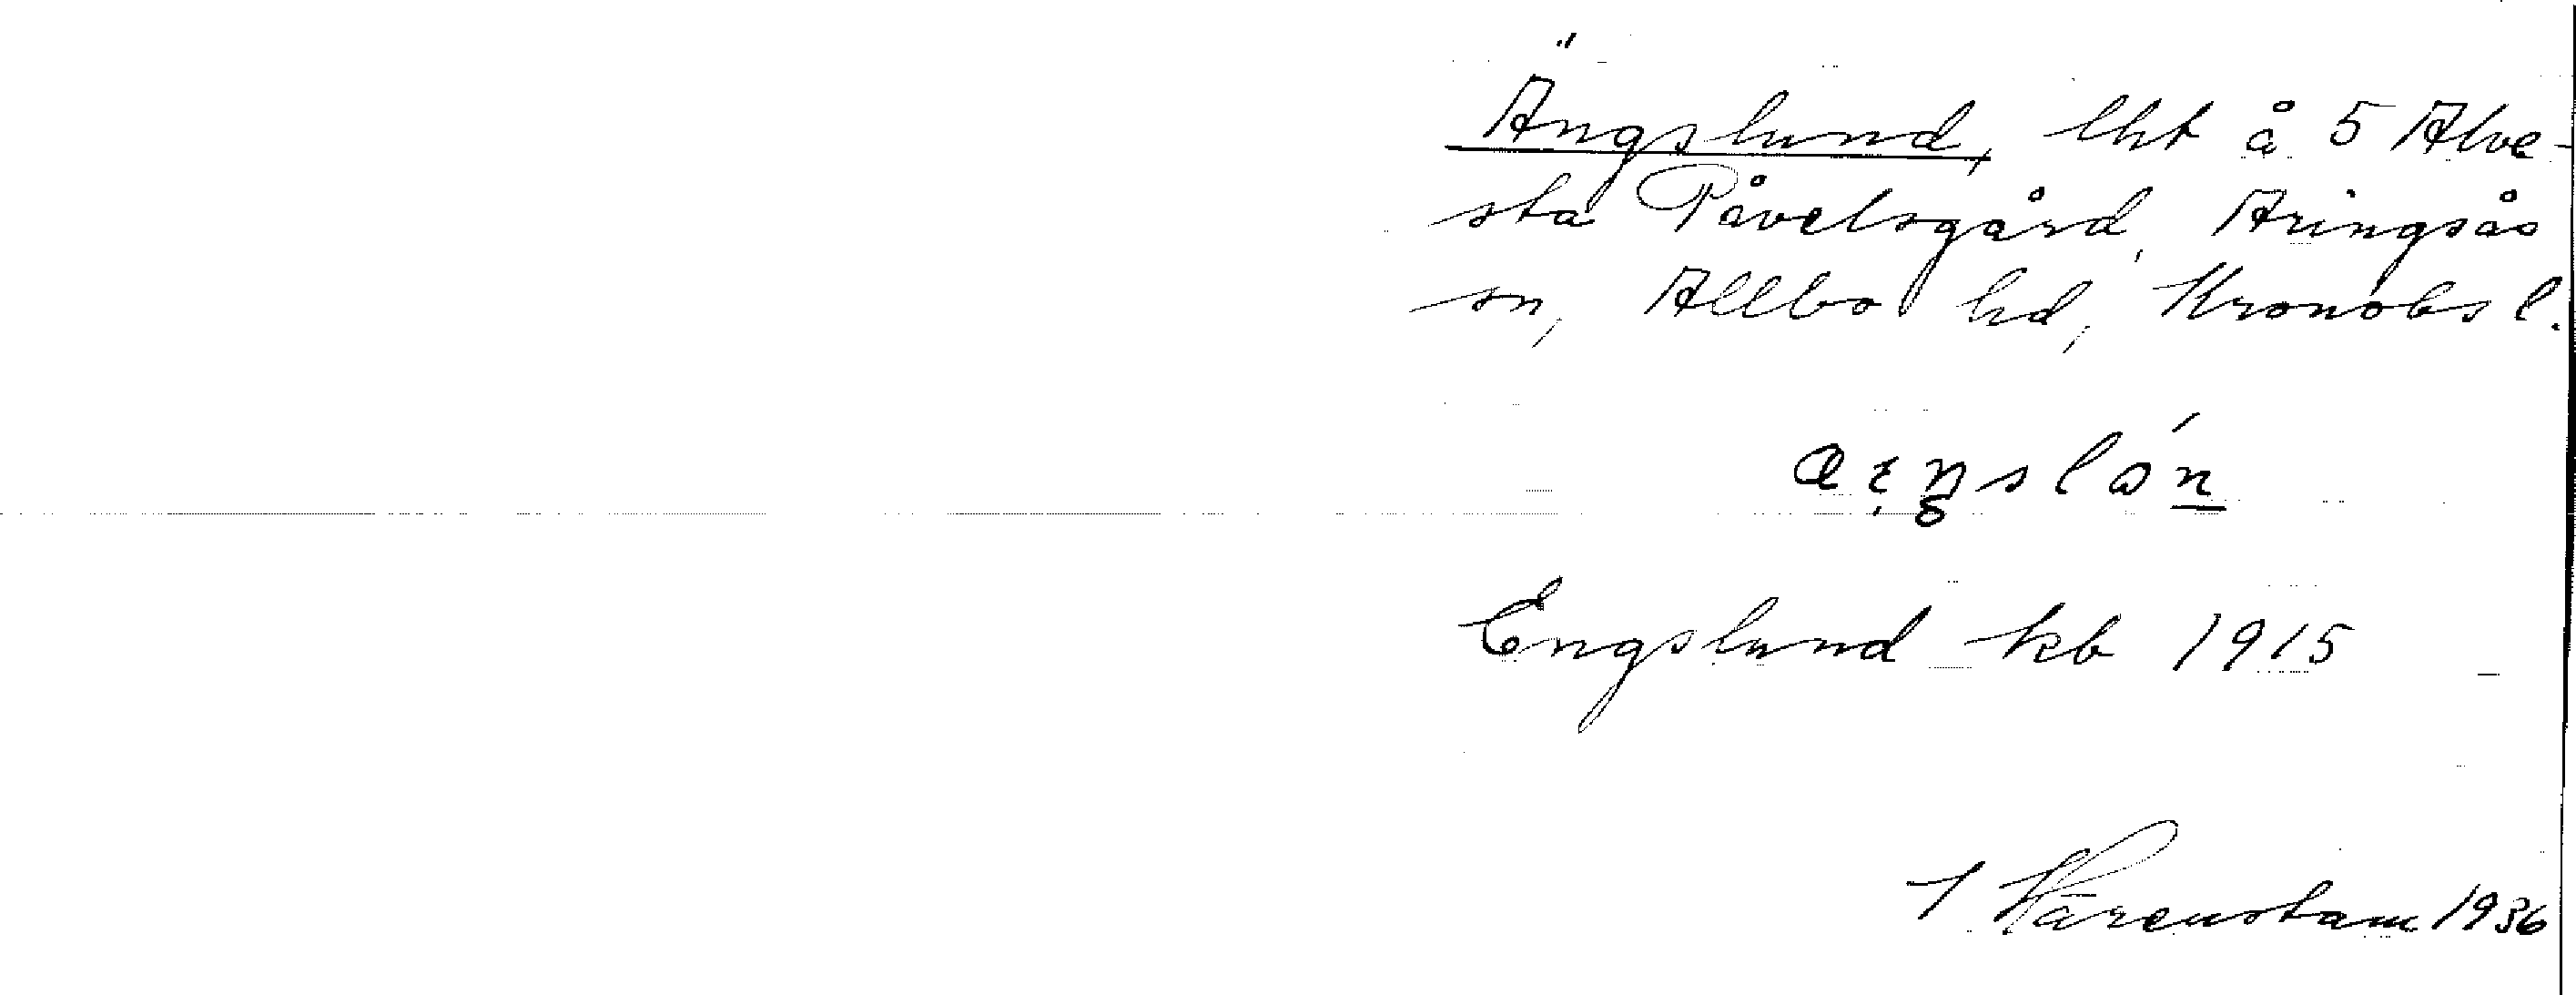 Ängslund, lht å 5 Alve-
sta Påvelsgård, Aringsås
sn, Allbo hd, Kronobs l.
Engslund kb 1915
Härenstam 1936